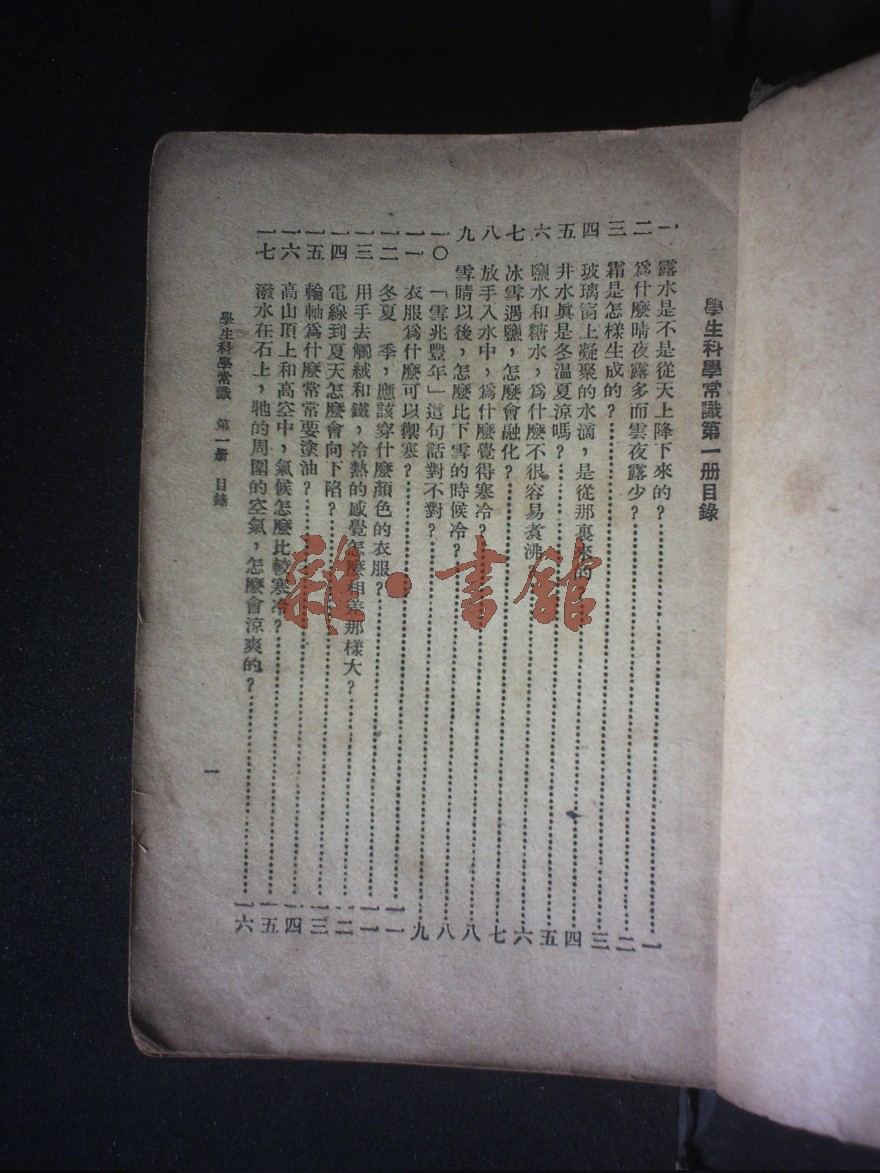 學生科學常識第一册目錄
一 露水是不是從天上降下來的？……一
二 爲什麼晴夜露多而雲夜露少？……二
三 霜是怎樣生成的？……三
四 玻璃窗上凝聚的水滴，是從那裏來的？……四
五 井水眞是冬温夏涼嗎？……五
六 鹽水和糖水，爲什麼不很容易煑沸？……六
七 冰雪遇鹽，怎麼會融化？……七
八 放手入水中，爲什麼覺得寒冷？……八
九 雪晴以後，怎麼比下雪的時候冷？……八
一〇 「雪兆豐年」這句話對不對？……九
一一 衣服爲什麼可以禦寒？……一一
一二 冬夏　季，應該穿什麼顏色的衣服？……一一
一三 用手去觸絨和鐵，冷熱的感覺怎麼相差那樣大？……一二
一四 電線到夏天怎麼會向下陷？……一三
一五 輪軸爲什麼常常要塗油？……一四
一六 高山頂上和高空中，氣候怎麼比較寒冷？……一五
一七 潑水在石上，牠的周圍的空氣，怎麼會涼爽的？……一六
學生科學常識　第一册　目錄
一
雜·書館